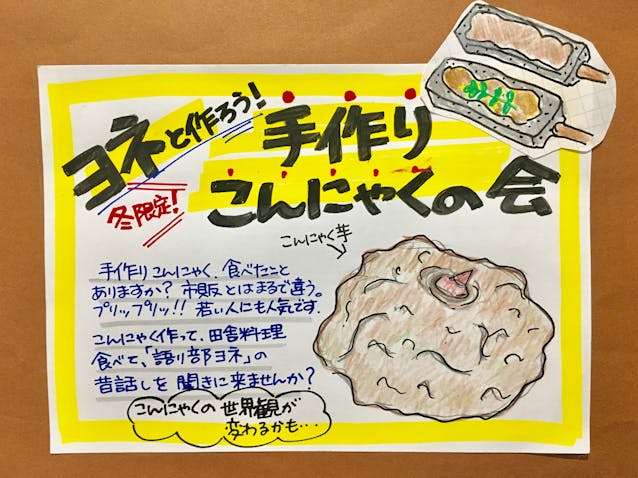 ヨネと作ろう!
手作り
こんにゃくの会
冬限定!
こんにゃく芋
手作りこんにゃく、食べたこと
ありますか? 市販とはまるで違う。
プリップリッ!! 若い人にも人気です.
こんにゃく作って、田舎料理
食べて、「語り部ヨネ」の
昔話しを聞きに来ませんか?
こんにゃくの世界観が
変わるかも…